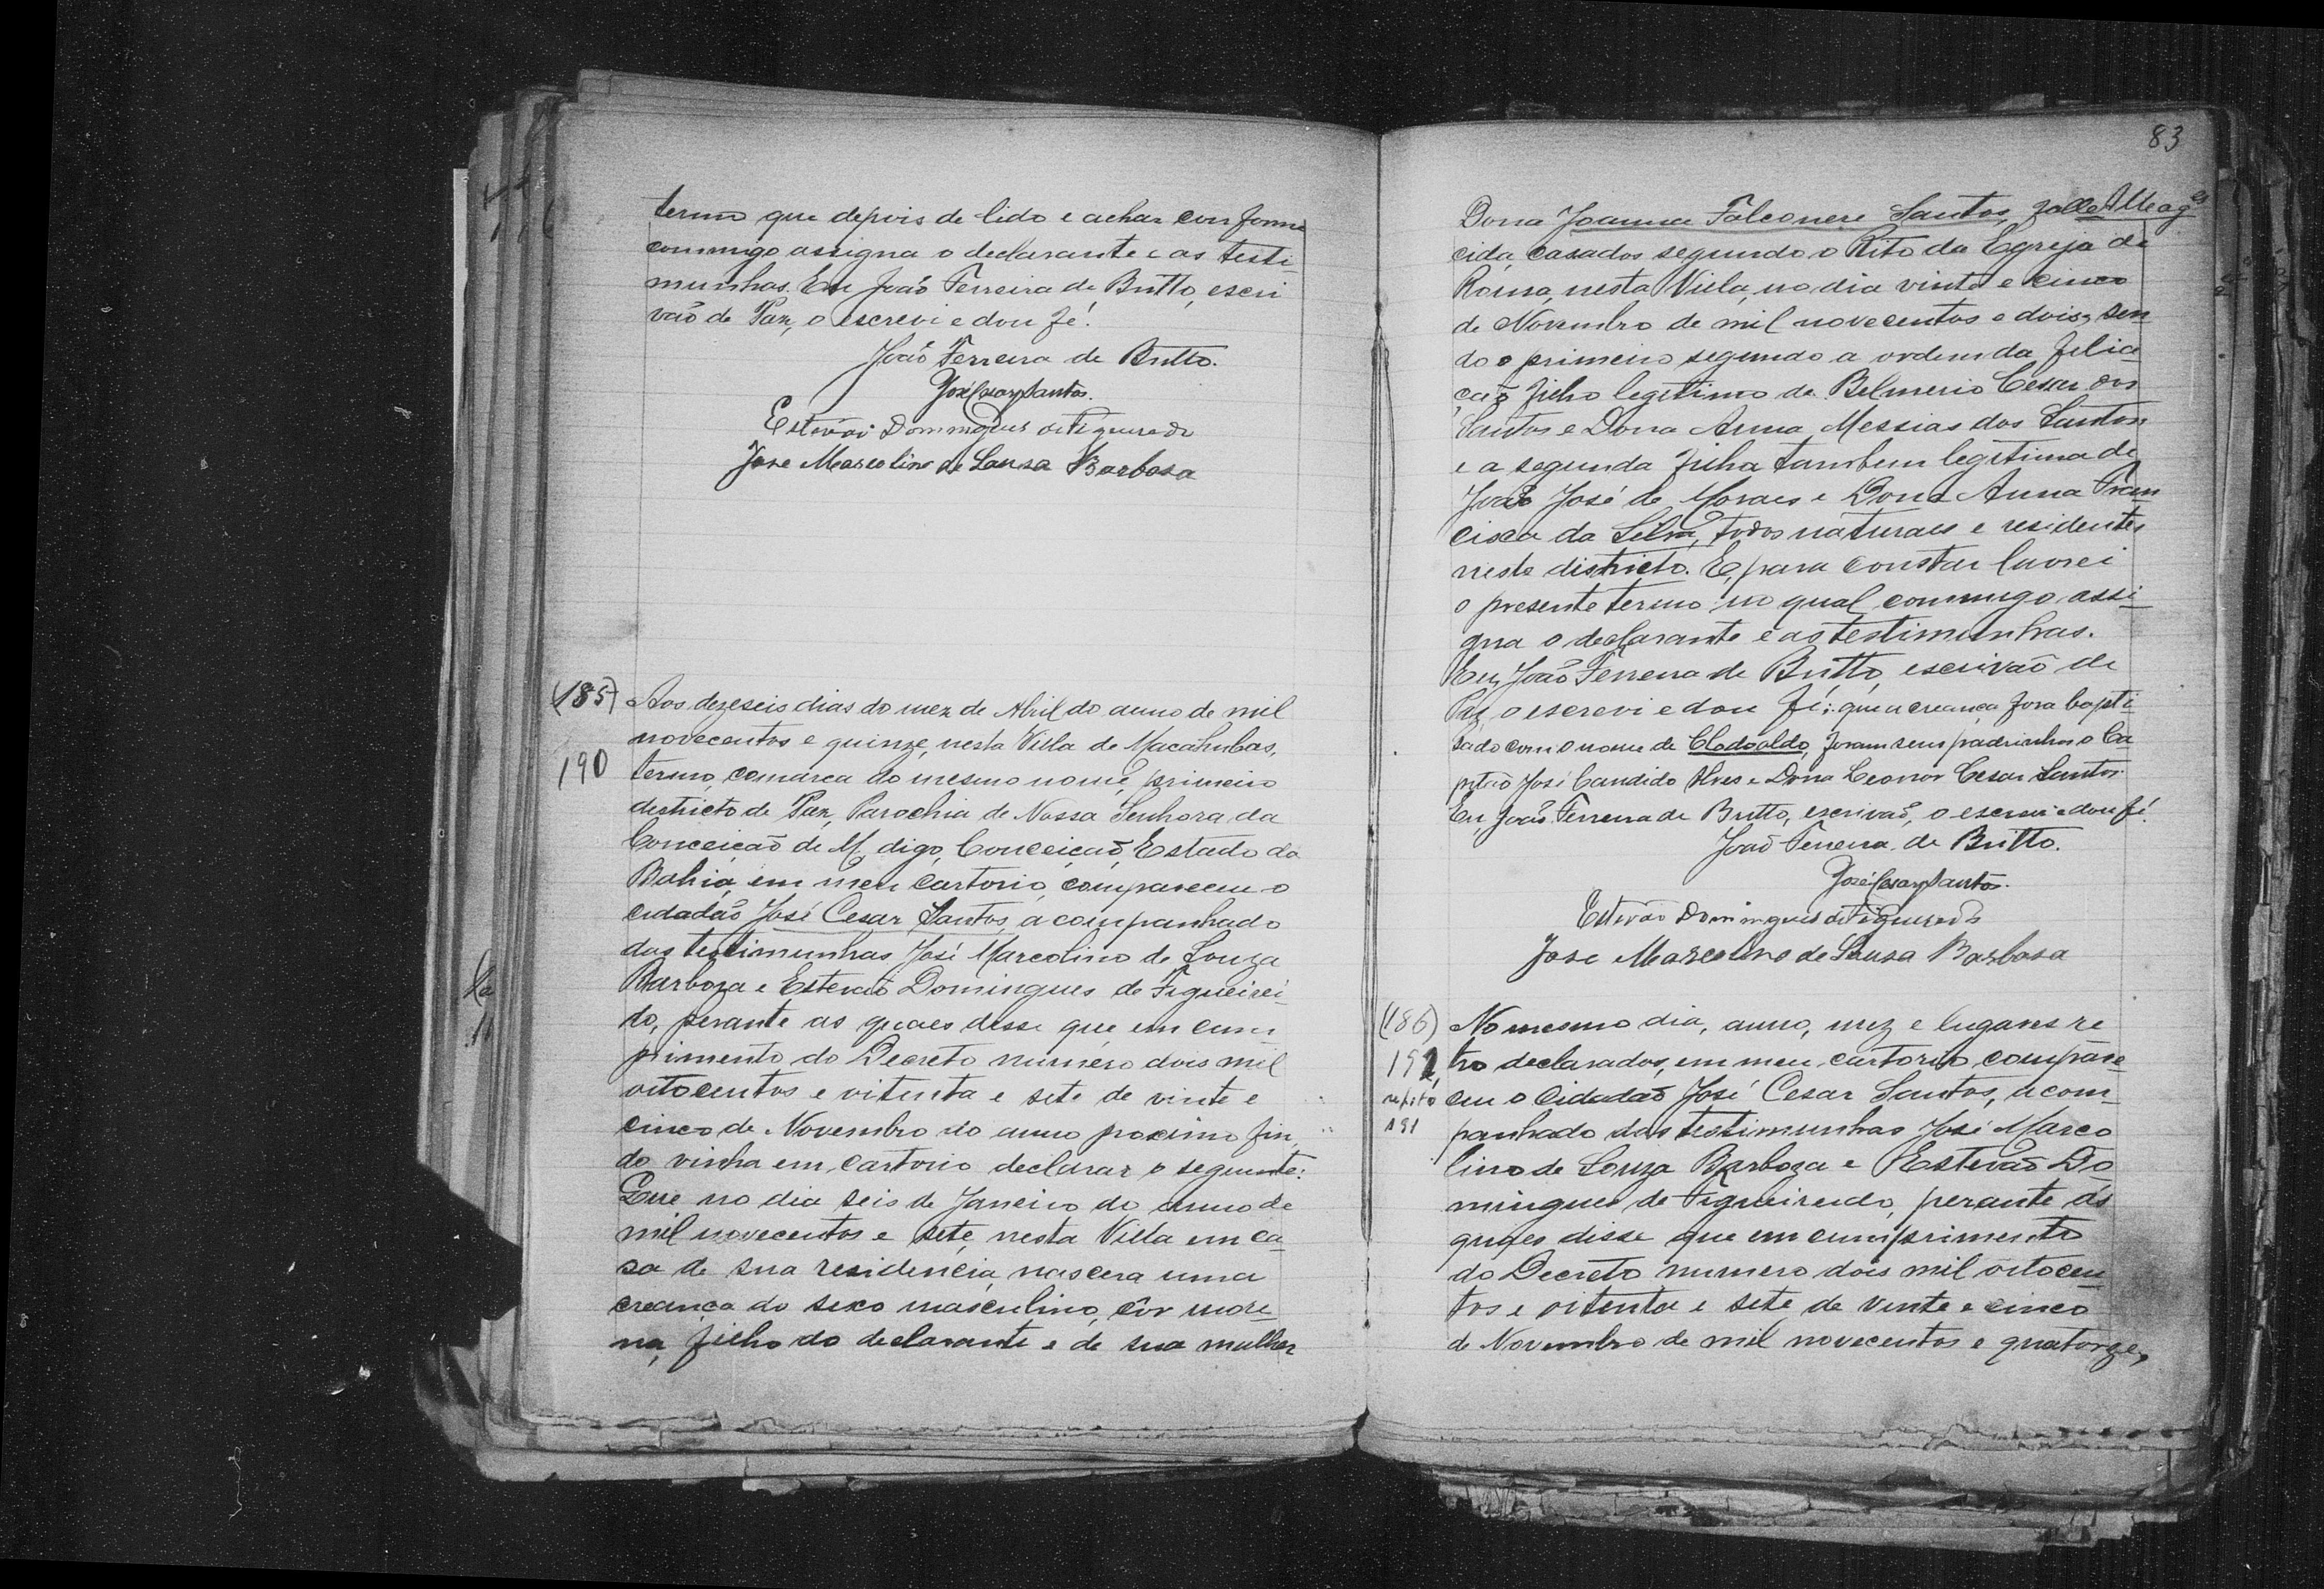 termo que depois de lido e achar conforme
commigo assigna o declarante e as testi-
munhas. Eu João Ferreira de Britto, escri
vão de Paz, o escrevi e dou fé.
João Ferreira de Britto.
José Cesar Santos.
Estevão Domingues de Figueiredo
Jose Marcolino de Sousa Barbosa
(185) Aos dezeseis dias do mez de Abril do anno de mil
novecentos e quinze, nesta Villa de Macahubas,
190 termo, comarca do mesmo nome, primeiro
districto de Paz, Parochia de Nossa Senhora da
Conceição de M, digo, Conceição, Estado da
Bahia, em meu cartorio, compareceu o
cidadão José Cesar Santos, acompanhado
das testimunhas José Marcolino de Souza
Barboza e Estevão Domingues de Figueirei-
do, perante as quaes disse que em cum
primento do Decreto numero dois mil
oitocentos e oitenta e sete de vinte e
cinco de Novembro do anno proximo fin
do vinha em cartorio declarar o seguinte:
Que no dia seis de Janeiro do anno de
mil novecentos e sete, nesta Villa em ca-
sa de sua residencia, nascera uma
creança do sexo masculino, côr more-
na, filho do declarante e de sua mulher
83
Dona Joanna Falconere Santos, falle
cida, casados segundo o Rito da Egreja de
Roma, nesta Villa, no dia vinte e cinco
de Novembro de mil novecentos e dois, sen
do o primeiro segundo a ordem da filia-
ção, filho legitimo de Belmerio Cesar dos
Santos e Dona Anna Messias dos Santos
e a segunda filha tambem legitima de
João José de Moraes e Dona Anna Fran
cisca da Silva, todos naturaes e residentes
neste districto. E, para constar lavrei
o presente termo no qual commigo assi-
gna o declarante e as testimunhas.
Eu, João Ferreira de Britto, escrivão de
Paz, o escrevi e dou fé; que a creança fora bapti-
sado com o nome de Clodoaldo, foram seus padrinhos o Ca-
pitão José Candido Alves e Dona Leonor Cesar Santos.
Eu, João Ferreira de Britto, escrivão, o escrevi e dou fé.
João Ferreira de Britto.
José Cesar Santos.
Estevão Domingues de Figueiredo
Jose Marcolino de Sousa Barbosa
(186) No mesmo dia, anno, mez e lugares re
191, tro declarados, em meu cartorio compare-
repito ceu o cidadão José Cesar Santos, acom-
191 panhado das testimunhas José Marco
lino de Souza Barboza e Estevão Do-
mingues de Figueiredo, perante as
quaes disse que em cumprimento
do Decreto numero dois mil oitocen-
tos e oitenta e sete de vinte e cinco
de Novembro de mil novecentos e quatorze,